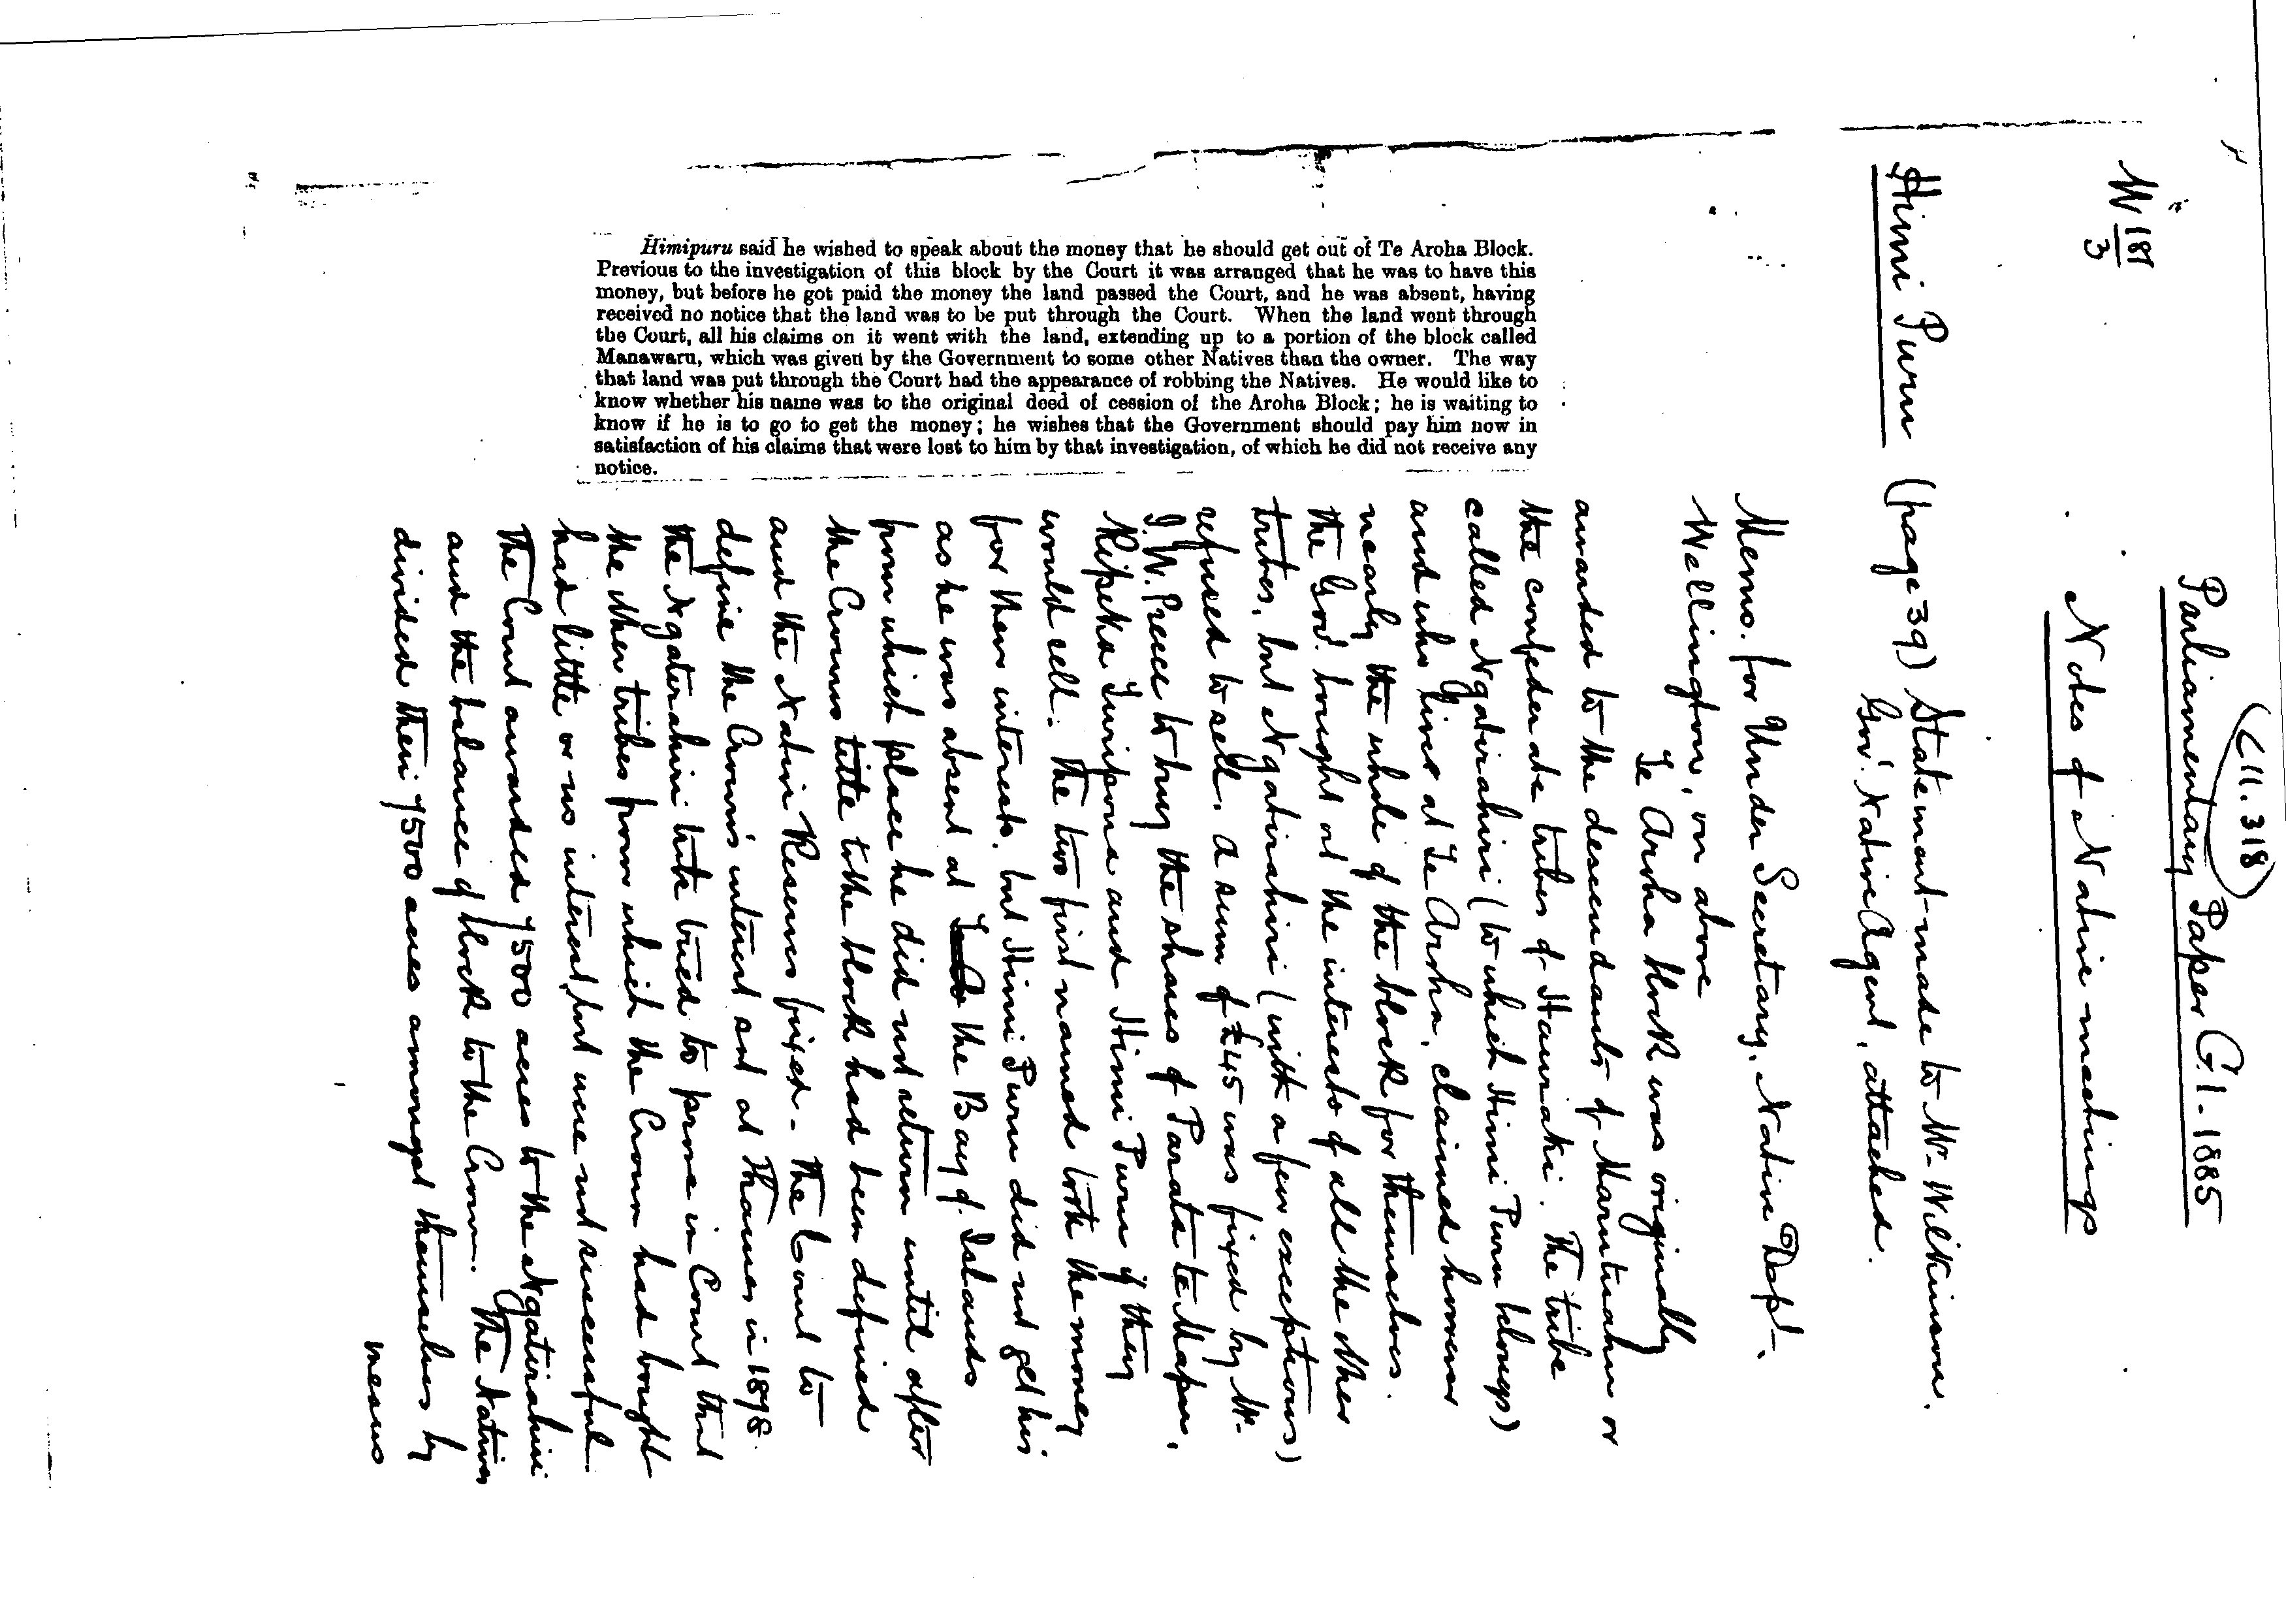 (11.318)
Parliamentary Paper G.1-1885
W 187/3
Notes of Native meetings
Himi Puru (page 39) Statement made to Mr Wilkinson,
Govt Native Agent, attached.
Himipuru said he wished to speak about the money that he should get out of Te Aroha Block.
Previous to the investigation of this block by the Court it was arranged that he was to have this
money, but before he got paid the money the land passed the Court, and he was absent, having
received no notice that the land was to be put through the Court. When the land went through
the Court, all his claims on it went with the land, extending up to a portion of the block called
Manawaru, which was given by the Government to some other Natives than the owner. The way
that land was put through the Court had the appearance of robbing the Natives. He would like to
know whether his name was to the original deed of cession of the Aroha Block; he is waiting to
know if he is to go to get the money; he wishes that the Government should pay him now in
satisfaction of his claims that were lost to him by that investigation, of which he did not receive any
notice.
Memo. for Under Secretary, Native Dept.,
Wellington, on above
Te Aroha block was originally
awarded to the descendants of Marutuahu or
the confederate tribes of Hauraki. The tribe
called Ngatirahiri (to which Himi Puru belongs)
and who lives at Te Aroha, claimed however
nearly the whole of the block for themselves.
The Govt. bought out the interests of all the other
tribes, but Ngatirahiri (with a few exceptions)
refused to sell. A sum of £45 was fixed by Mr
J. W. Preece to buy the shares of Parata te Mapu,
Ripeka Turipona and Himi Puru if they
would sell. The two first named took the money
for their interests, but Himi Puru did not get his
as he was absent at the Bay of Islands
from which place he did not return until after
the Crowns title to the block had been defined
and the Native Reserves fixed. The Court to
define the Crown's interest sat at Thames in 1878.
the Ngatirahiri tribe tried to prove in Court that
the other tribes from which the Crown had bought
had little or no interest, but were not successful
The Court awarded 7500 acres to the Ngatirahiri
and the balance of block to the Crown. The Natives
divided their 7500 acres amongst themselves by
means